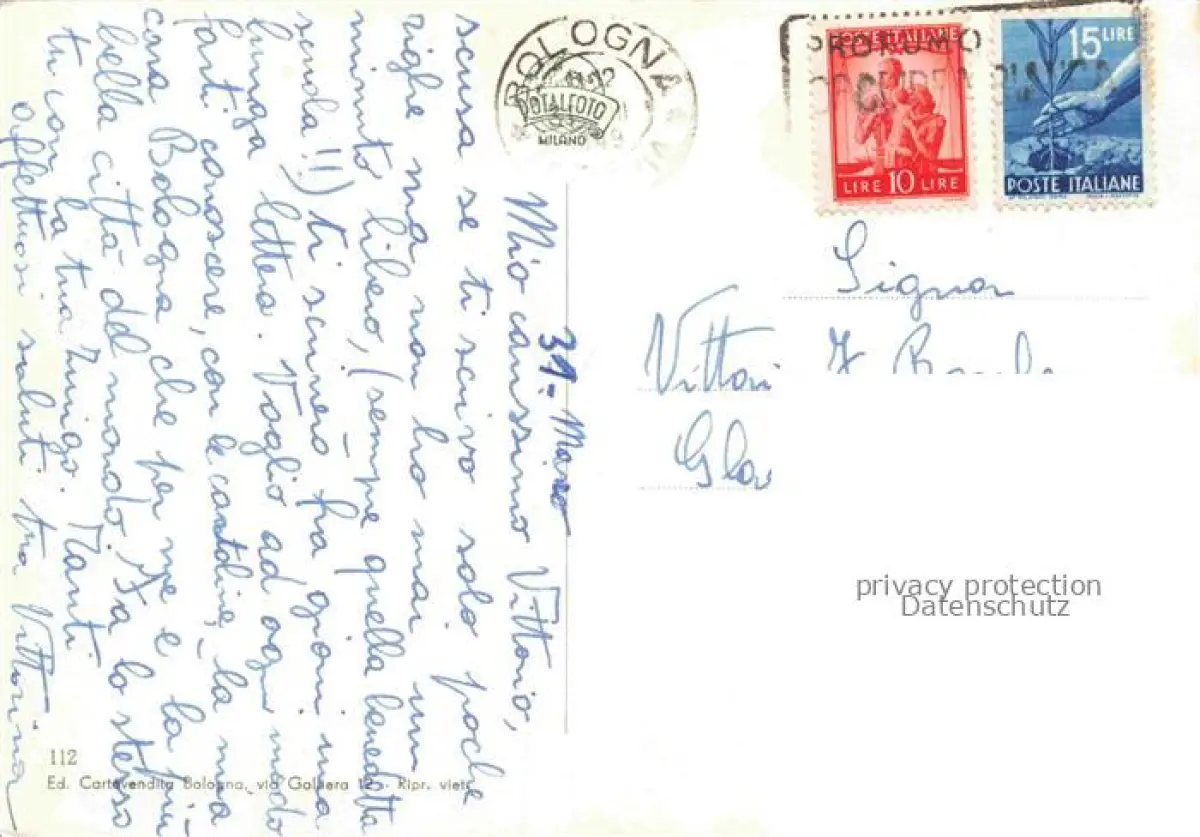 31 - Marzo
Mio carissimo Vittorio,
scusa se ti scrivo solo poche
righe ma non ho mai un
minuto libero, (sempre quella benedetta
scuola!!) ti scriverò fra giorni una
lunga lettera. Voglio ad ogni modo
farti conoscere, con le cartoline, la mia
cara Bologna che per me è la più
bella città del mondo. Fa lo stesso
tu con la tua Zurigo. Tanti
affettuosi saluti tua Vittorina
BOLOGNA
TOTALFOTO
MILANO
POSTE ITALIANE
LIRE 10 LIRE
15 LIRE
POSTE ITALIANE
PROFUMO
Signor
Vittori
Gla
privacy protection
Datenschutz
112
Ed. Cartovendita Bologna, via Galliera 12 - Ripr. viet.